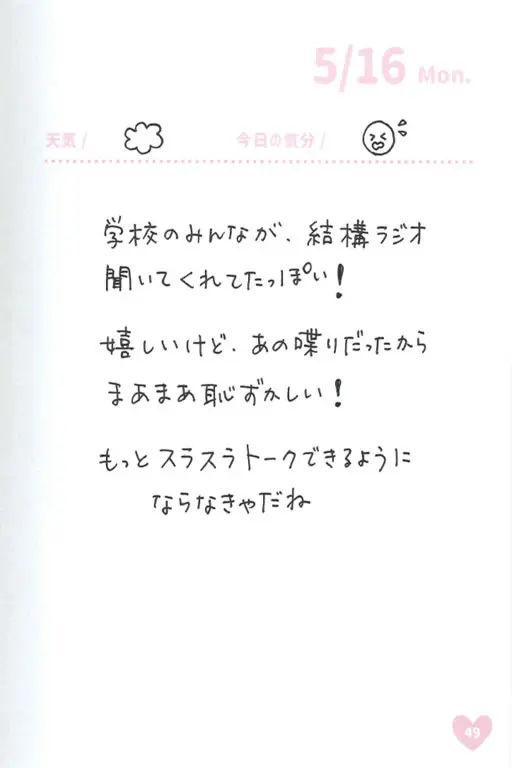 5/16 Mon.
天気/ 今日の気分/
学校のみんなが、結構ラジオ
聞いてくれてたっぽい!
嬉しいけど、あの喋りだったから
まあまあ恥ずかしい!
もっとスラスラトークできるように
ならなきゃだね
49